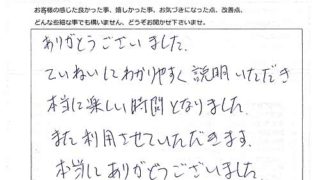 お客様の感じた良かった事、嬉しかった事、お気づきになった点、改善点、
どんな些細な事でも構いません、どうぞお聞かせ下さいませ。
ありがとうございました。
ていねいでわかりやすく説明いただき
本当に楽しい時間となりました。
また利用させていただきます。
本当にありがとうございました。